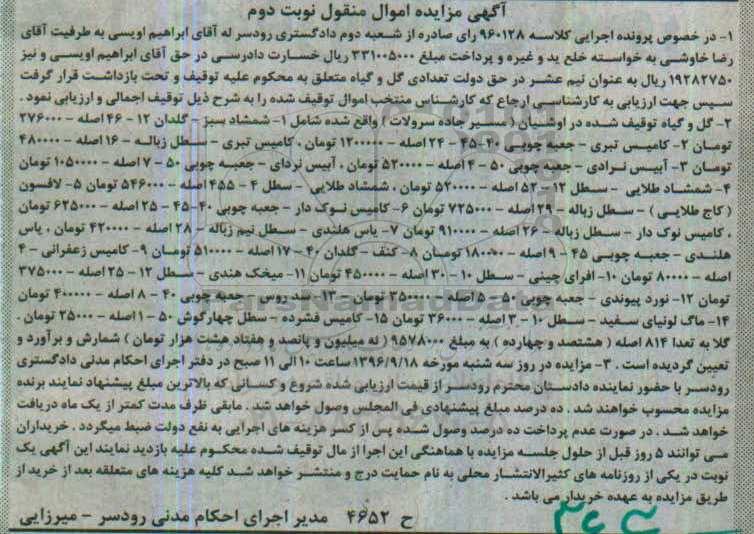 آگهی مزایده اموال منقول نوبت دوم
۱- در خصوص پرونده اجرایی کلاسه ۹۶۰۱۲۸ رای صادره از شعبه دوم دادگستری رودسر له آقای ابراهیم اویسی به طرفیت آقای
رضا خاوشی به خواسته خلع ید و غیره و پرداخت مبلغ ۳۳۱۰۰۵۰۰۰ ریال خسارت دادرسی در حق آقای ابراهیم اویسی و نیز
۱۹۲۸۲۷۵۰ ریال به عنوان نیم عشر در حق دولت تعدادی گل و گیاه متعلق به محکوم علیه توقیف و تحت بازداشت قرار گرفت
سپس جهت ارزیابی به کارشناسی ارجاع که کارشناس منتخب اموال توقیف شده را به شرح ذیل توقیف اجمالی و ارزیابی نمود .
۲- گل و گیاه توقیف شده در مسیر جاده سرولات / واقع شده شامل ۱- شمشاد سبز - گلدان ۱۲ - ۴۶ اصله - ۲۷۶۰۰۰
تومان ۲- کامیس تبری - جعبه چوبی ۴۰-۴۵ - ۲۴ اصله - ۱۲۰۰۰۰۰ تومان ، کامیس تبری - سطل زباله - ۱۶ اصله - ۴۸۰۰۰۰
تومان ۳- آبیس نرادی - جعبه چوبی ۵۰ - ۴ اصله - ۵۲۰۰۰۰ تومان ، آبیس نردای - جعبه چوبی ۵۰ - ۷ اصله - ۱۰۵۰۰۰۰ تومان
۴- شمشاد طلایی - سطل ۱۲ - ۵۲ اصله - ۵۲۰۰۰۰ تومان ، شمشاد طلایی - سطل ۴ - ۴۵۵ اصله - ۵۴۶۰۰۰ تومان ۵- لافسون
( کاج طلایی ) - سطل زباله - ۲۹ اصله - ۷۲۵۰۰۰ تومان ۶- کامیس نوک دار - جعبه چوبی ۴۰-۴۵ - ۲۵ اصله - ۶۲۵۰۰۰ تومان
، کامیس نوک دار - سطل زباله - ۲۶ اصله - ۹۱۰۰۰۰ تومان ۷- یاس هلندی - سطل نیم زباله - ۲۸ اصله - ۴۲۰۰۰۰ تومان ، یاس
هلندی - جعبه چوبی ۴۵ - ۹ اصله - ۱۸۰۰۰۰ تومان ۸- کنف - گلدان ۴۰ - ۱۷ اصله - ۵۱۰۰۰۰ تومان ۹- کامیس زعفرانی - ۴
اصله - ۸۰۰۰۰ تومان ۱۰- افرای چینی - سطل ۱۰ - ۳۰ اصله - ۴۵۰۰۰۰ تومان ۱۱- میخک هندی - سطل ۱۲ - ۲۵ اصله - ۳۷۵۰۰۰
تومان ۱۲- نورد پیوندی - جعبه چوبی ۵۰ - ۵ اصله - ۳۵۰۰۰۰ تومان - ۱۳- سدروس - جعبه چوبی ۴۰ - ۸ اصله - ۴۰۰۰۰۰ تومان
۱۴- ماگ لونیای سفید - سطل ۱۰ - ۳ اصله - ۳۶۰۰۰ تومان ۱۵- کامیس فشرده - سطل چهارگوش ۵۰ - ۱ اصله - ۲۵۰۰۰ تومان .
گلا به تعدا ۸۱۴ اصله ( هشتصد و چهارده ) به مبلغ ۹۵۷۸۰۰۰ ( نه میلیون و پانصد و هفتاد هشت هزار تومان ) شمارش و برآورد و
تعیین گردیده است . ۳- مزایده در روز سه شنبه مورخه ۱۳۹۶/۹/۱۸ ساعت ۱۰ الی ۱۱ صبح در دفتر اجرای احکام مدنی دادگستری
رودسر با حضور نماینده دادستان محترم رودسر از قیمت ارزیابی شده شروع و کسانی که بالاترین مبلغ پیشنهاد نمایند برنده
مزایده محسوب خواهند شد . ده درصد مبلغ پیشنهادی فی المجلس وصول خواهد شد . مابقی ظرف مدت کمتر از یک ماه دریافت
خواهد شد . در صورت عدم پرداخت ده درصد وصول شده پس از کسر هزینه های اجرایی به نفع دولت ضبط میگردد . خریداران
می توانند ۵ روز قبل از حلول جلسه مزایده با هماهنگی این اجرا از مال توقیف شده محکوم علیه بازدید نمایند این آگهی یک
نوبت در یکی از روزنامه های کثیرالانتشار محلی به نام حمایت درج و منتشر خواهد شد کلیه هزینه های متعلقه بعد از خرید از
طریق مزایده به عهده خریدار می باشد .
ح ۴۶۵۲ مدیر اجرای احکام مدنی رودسر - میرزایی